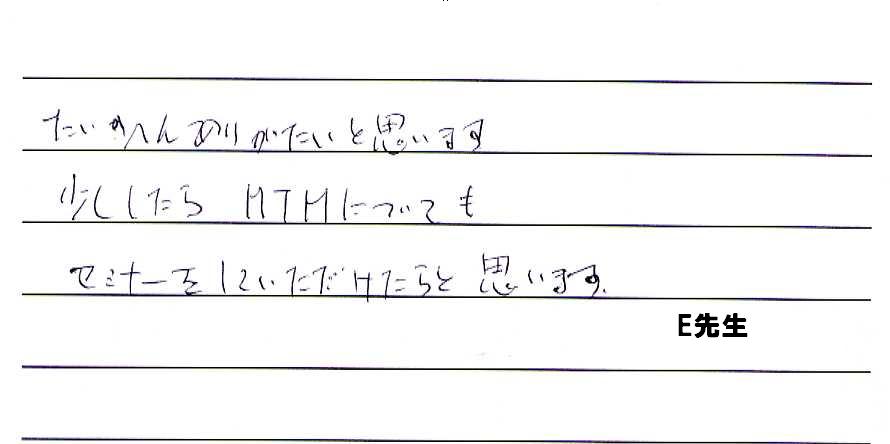 たいへんありがたいと思います
少ししたら MTMについても
セミナーをしていただけたらと思います.
E先生